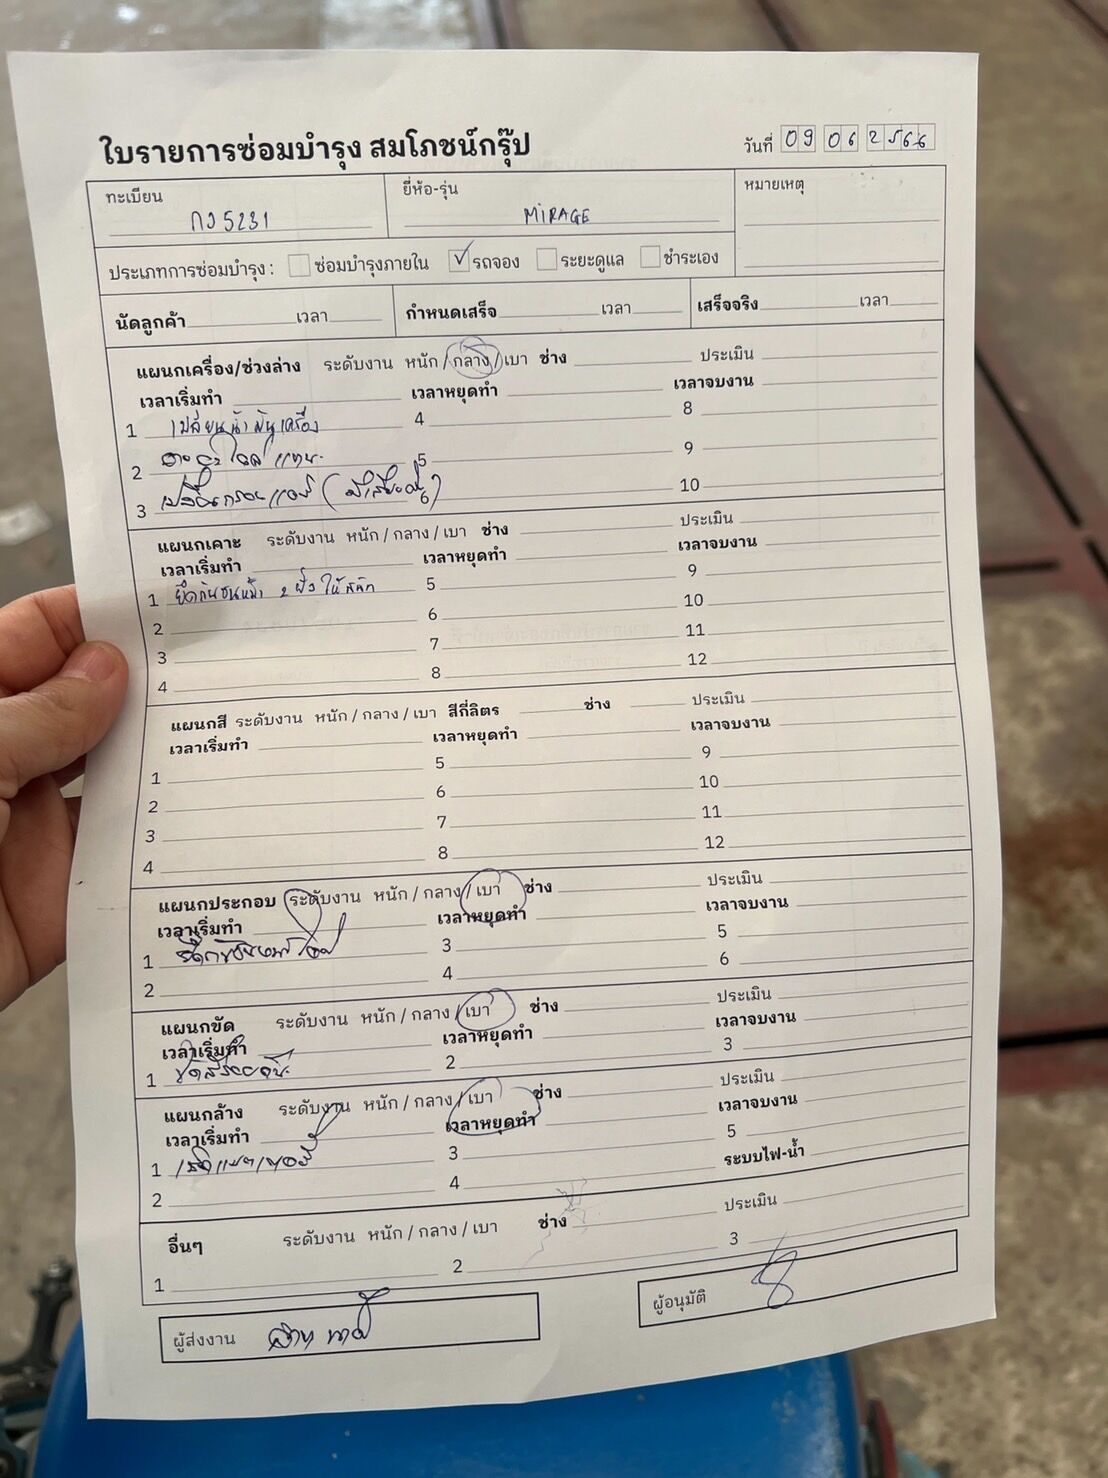 ใบรายการซ่อมบำรุง สมโภชน์กรุ๊ป
วันที่ 09 06 2566
ทะเบียน
กว 5231
ยี่ห้อ-รุ่น
MIRAGE
หมายเหตุ
ประเภทการซ่อมบำรุง : ซ่อมบำรุงภายใน ✓ รถจอง ระยะดูแล ชำระเอง
นัดลูกค้า เวลา กำหนดเสร็จ เวลา เสร็จจริง เวลา
แผนกเครื่อง/ช่วงล่าง ระดับงาน หนัก / กลาง / เบา ช่าง ประเมิน
เวลาเริ่มทำ เวลาหยุดทำ เวลาจบงาน
1 เปลี่ยนน้ำมันเครื่อง 4 8
2 5 9
3 เปลี่ยนกรองแอร์ 6 10
แผนกเคาะ ระดับงาน หนัก / กลาง / เบา ช่าง ประเมิน
เวลาเริ่มทำ เวลาหยุดทำ เวลาจบงาน
1 ยึดกันชนหน้า 2 ฝั่ง ให้สนิท 5 9
2 6 10
3 7 11
4 8 12
แผนกสี ระดับงาน หนัก / กลาง / เบา สีกี่ลิตร ช่าง ประเมิน
เวลาเริ่มทำ เวลาหยุดทำ เวลาจบงาน
1 5 9
2 6 10
3 7 11
4 8 12
แผนกประกอบ ระดับงาน หนัก / กลาง / เบา ช่าง ประเมิน
เวลาเริ่มทำ เวลาหยุดทำ เวลาจบงาน
1 3 5
2 4 6
แผนกขัด ระดับงาน หนัก / กลาง / เบา ช่าง ประเมิน
เวลาเริ่มทำ เวลาหยุดทำ เวลาจบงาน
1 ขัดสีรอบคัน 2 3
แผนกล้าง ระดับงาน หนัก / กลาง / เบา ช่าง ประเมิน
เวลาเริ่มทำ เวลาหยุดทำ เวลาจบงาน
1 3 5
2 4 ระบบไฟ-น้ำ
อื่นๆ ระดับงาน หนัก / กลาง / เบา ช่าง ประเมิน
1 2 3
ผู้ส่งงาน
ผู้อนุมัติ